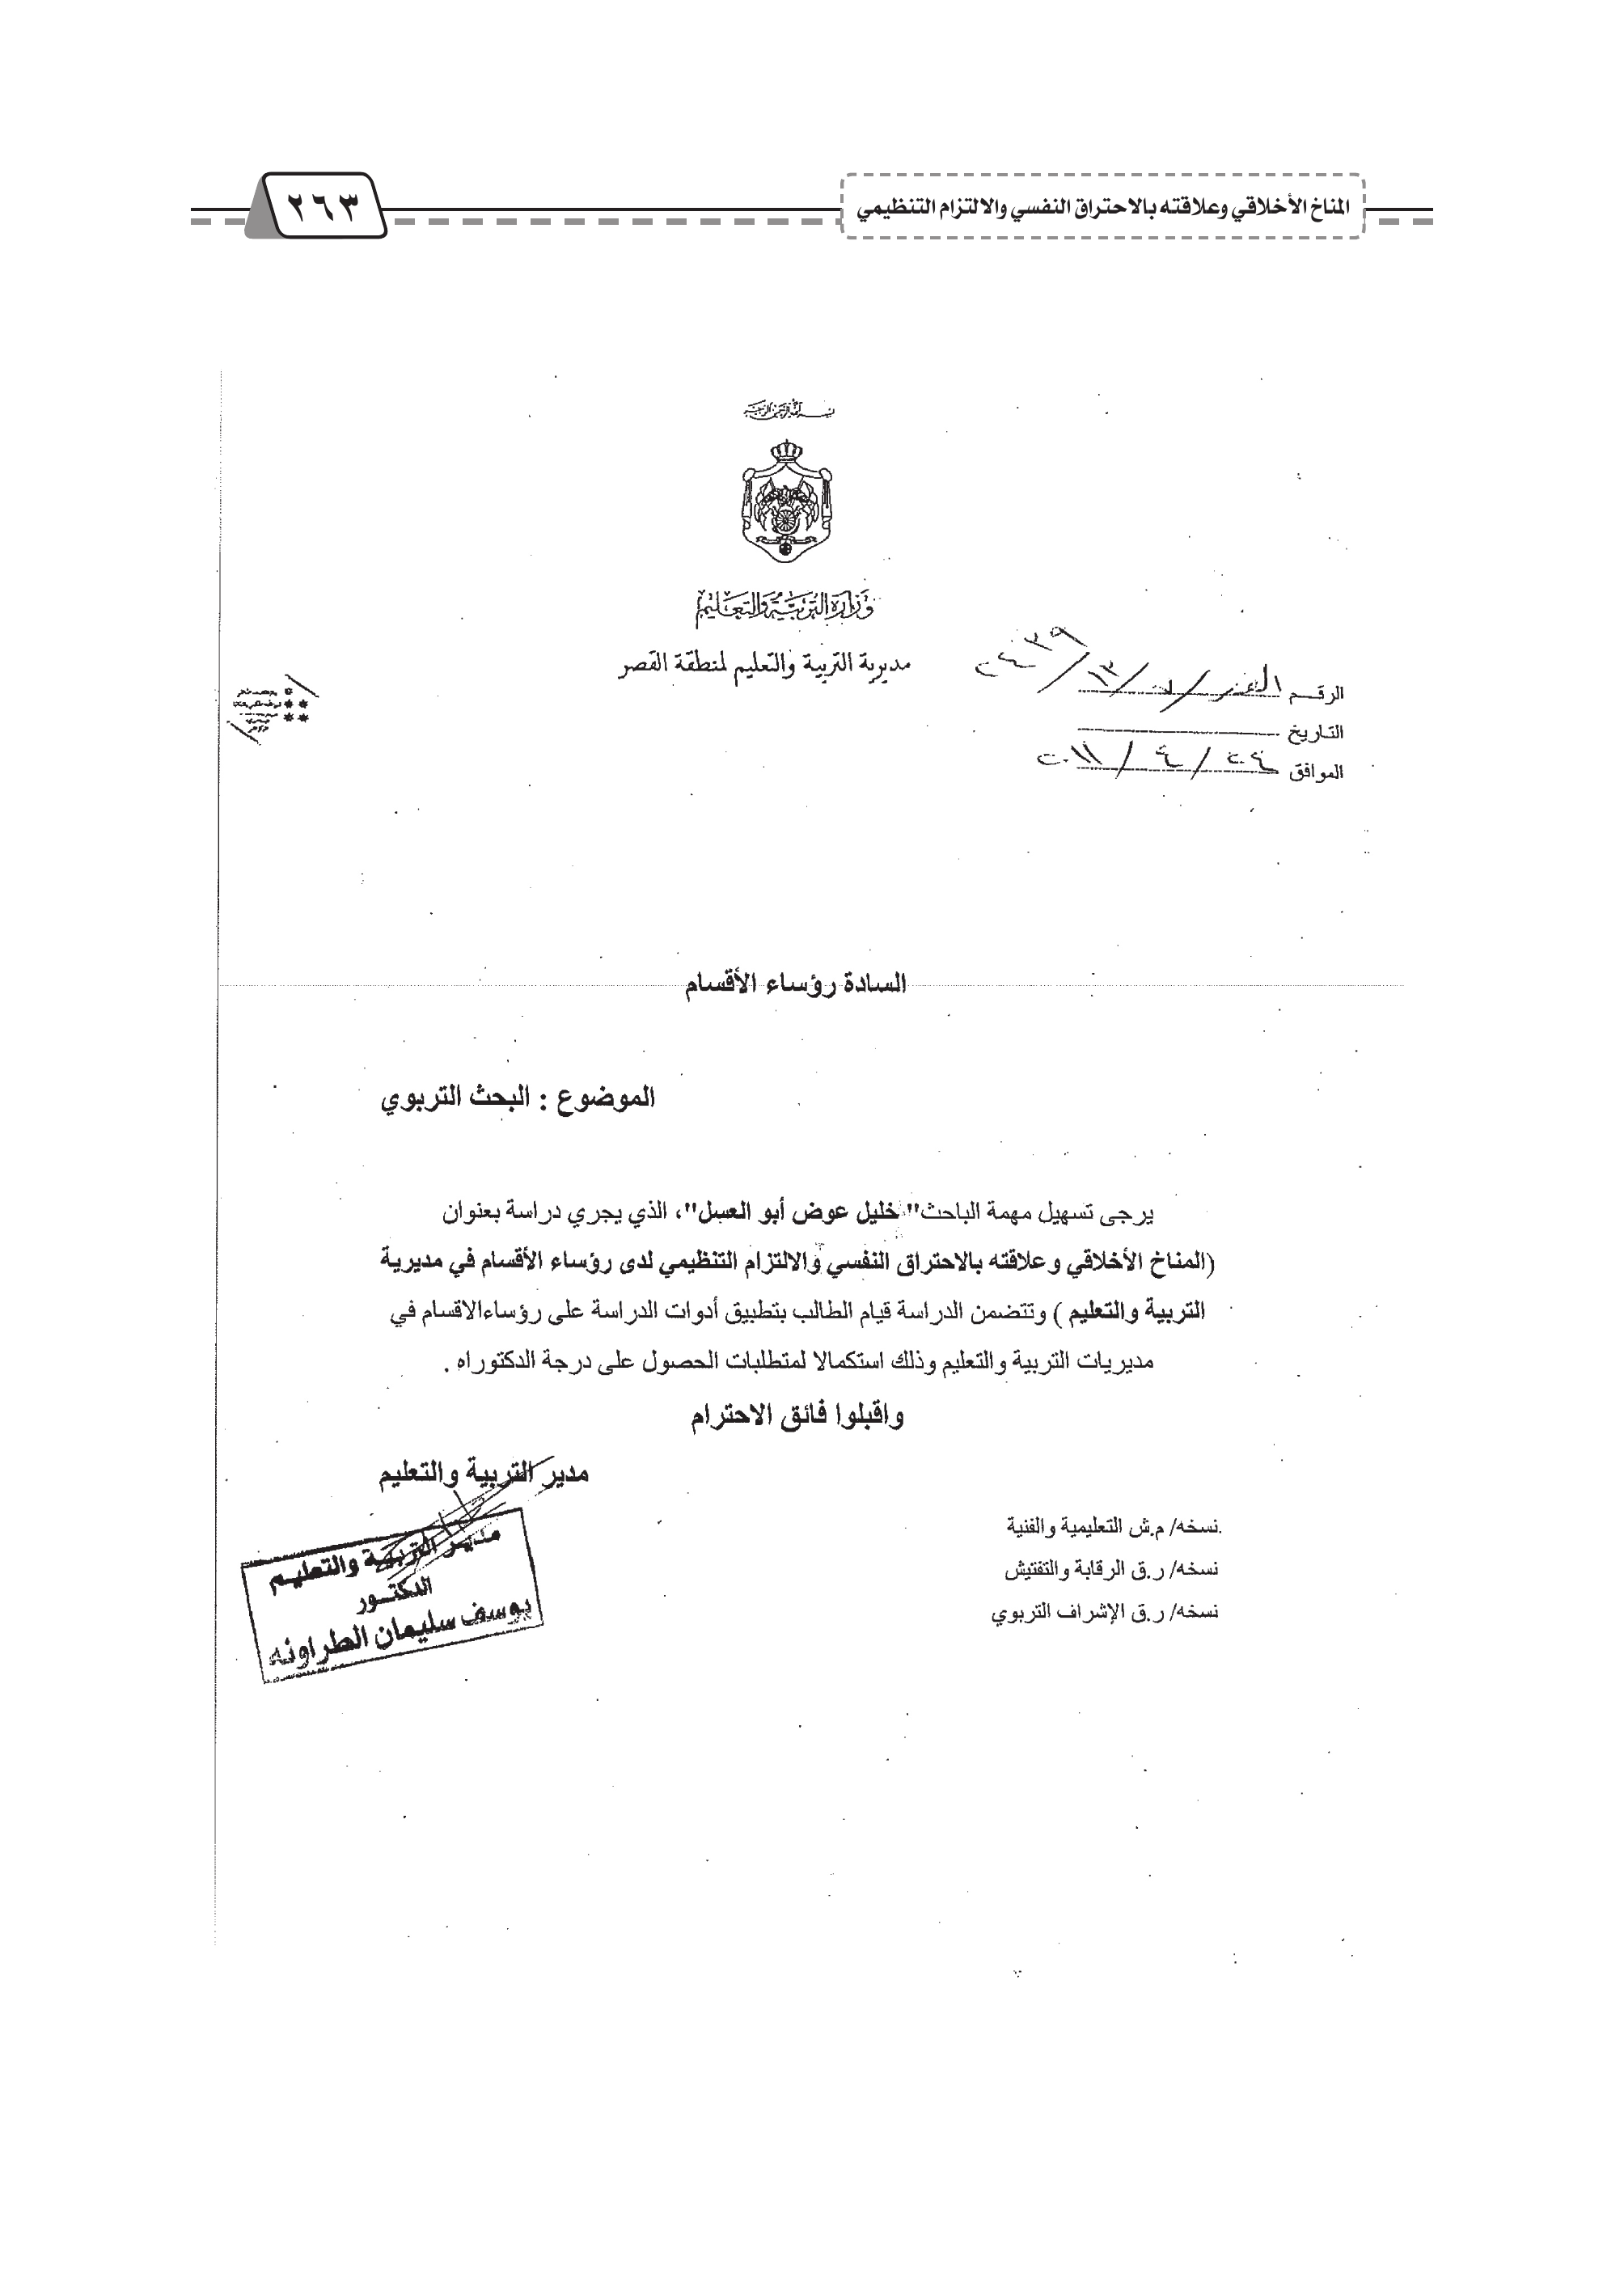 المناخ الأخلاقي وعلاقته بالاحتراق النفسي والالتزام التنظيمي
٢٦٣
بسم الله الرحمن الرحيم
وزارة التربية والتعليم
مديرية التربية والتعليم لمنطقة القصر
الرقم
التاريخ
الموافق ٢٤ / ٤ / ٢٠١١
السادة رؤساء الأقسام
الموضوع : البحث التربوي
يرجى تسهيل مهمة الباحث" خليل عوض أبو العسل"، الذي يجري دراسة بعنوان
(المناخ الأخلاقي وعلاقته بالاحتراق النفسي والالتزام التنظيمي لدى رؤساء الأقسام في مديرية
التربية والتعليم ) وتتضمن الدراسة قيام الطالب بتطبيق أدوات الدراسة على رؤساءالاقسام في
مديريات التربية والتعليم وذلك استكمالا لمتطلبات الحصول على درجة الدكتوراه .
واقبلوا فائق الاحترام
مدير التربية والتعليم
مدير التربية والتعليم
الدكتور
يوسف سليمان الطراونه
نسخه/ م.ش التعليمية والفنية
نسخه/ ر.ق الرقابة والتفتيش
نسخه/ ر.ق الإشراف التربوي